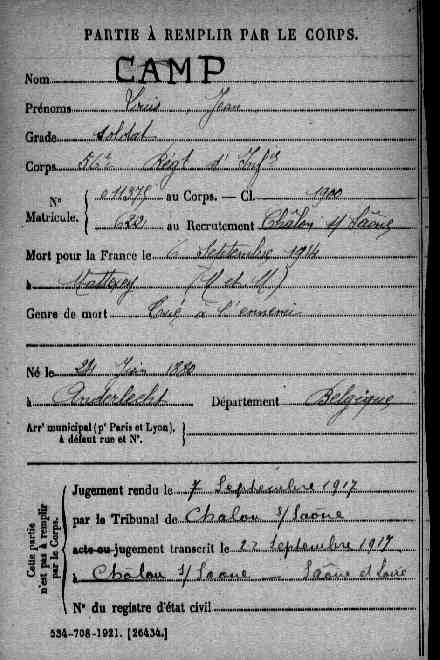 PARTIE À REMPLIR PAR LE CORPS.
Nom CAMP
Prénoms Louis, Jean
Grade soldat
Corps 56e Régt d'Infie
N° Matricule. { 011375 au Corps. — Cl. 1900
620 au Recrutement Châlon s/ Saône
Mort pour la France le 6 Septembre 1914
à Mattexey (M et M)
Genre de mort Tué à l'ennemi
Né le 24 Juin 1880
à Anderlecht Département Belgique
Arrt municipal (pr Paris et Lyon), à défaut rue et N°.
Cette partie n'est pas à remplir par le Corps.
Jugement rendu le 7 Septembre 1917
par le Tribunal de Chalon s/Saone
acte ou jugement transcrit le 22 Septembre 1917
à Châlon s/Saone — Saône et Loire
N° du registre d'état civil
534-708-1921. [26434.]